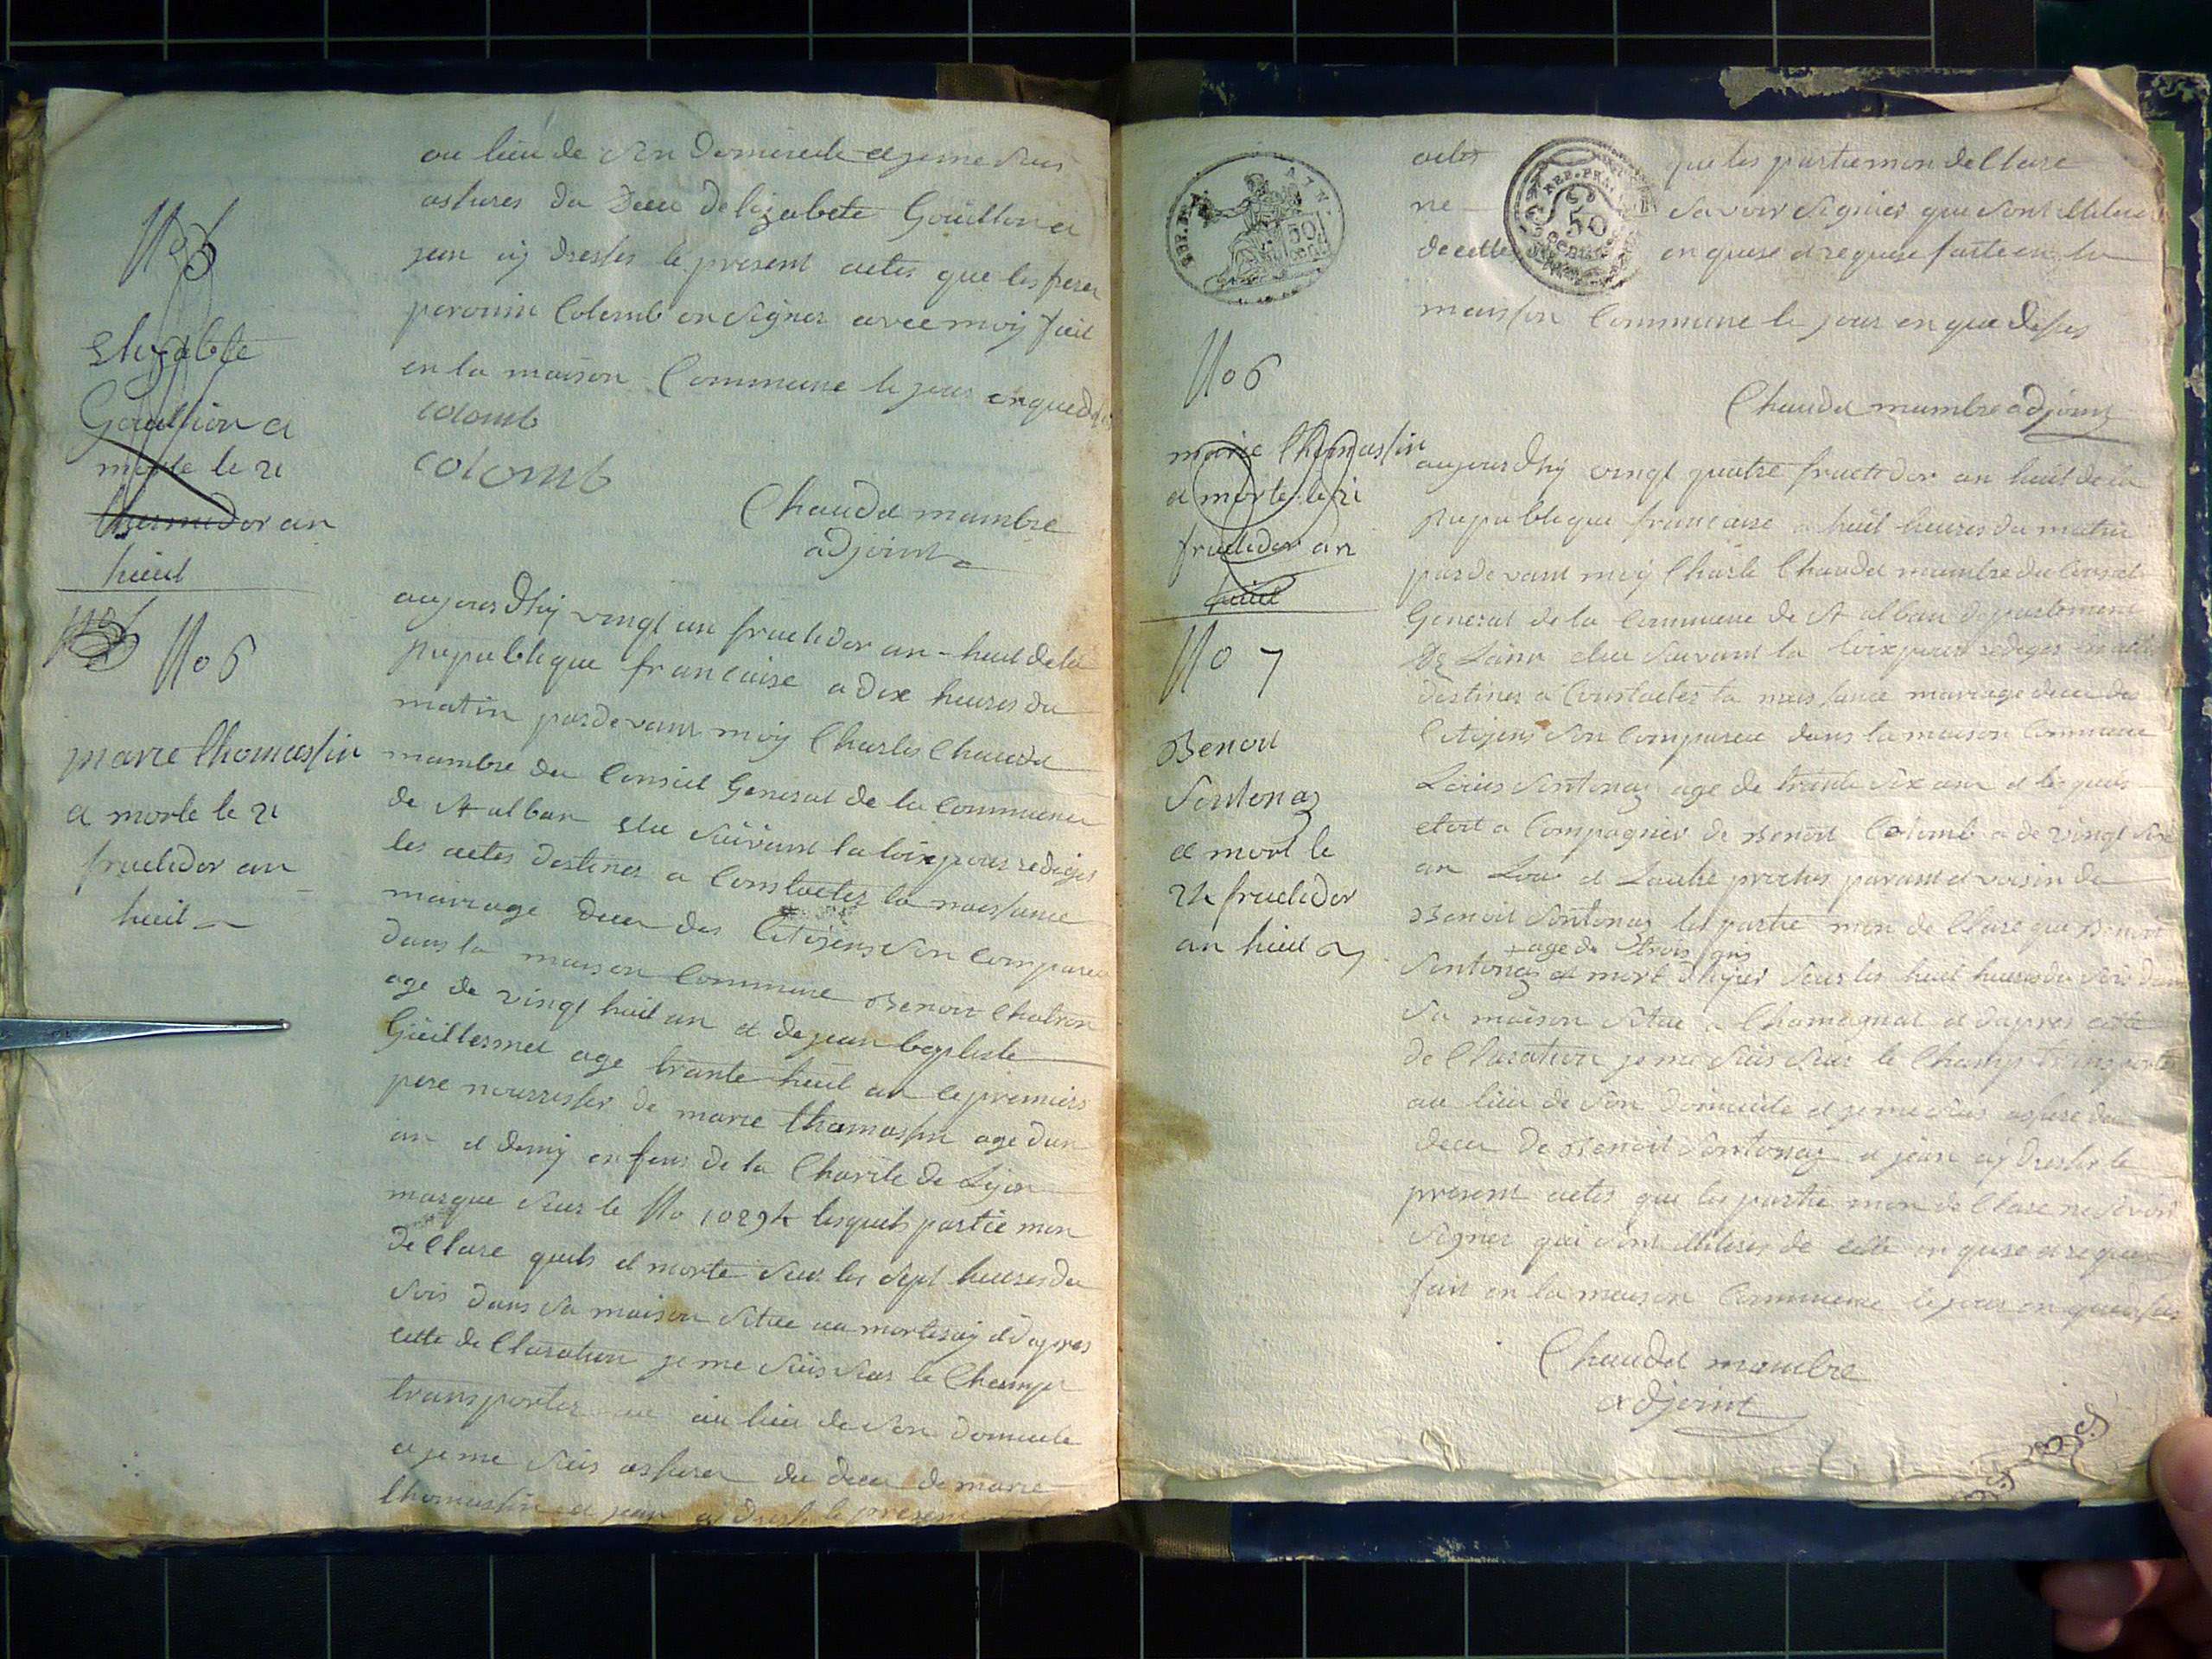 au lieu de son domicile et je me suis
assures du Deces delizabete Gouillon et
jean aÿ dresses le present actes que les frere
peronin Colomb on signer avec moÿ fait
en la maison Commune le jour en que desus
colomb
colomb
Chaudet mambre
adjoint
No 5
Elizabete
Gouillion et
morte le 21
thermidor an
heuil
No 6
marie thomassin
et morte le 21
fructidor an
heuil
aujourdhÿ vingt un fructidor an heuit de la
Republique francaise a dix heures du
matin pardevant moÿ Charles Chaudet
mambre du Conseil General de la Commune
de St alban Elu suivant la loix pour rediges
les actes destines a Constactes la naissance
mairage deces des Citoÿens son comparu
dans la maison Commune Benoit Chatron
age de vingt huit an et de jean baptiste
Guillermet age trante heuit an le premiers
pere nourrisser de marie thomassin age dun
an et demÿ enfans de la Charite de Lÿon
marque sur le No 10294 lesquels partie mon
declare quels et morte sur les sept heures du
soir dans sa maison situe au morteraÿ et dapres
cette declaration je me suis sur le Champ
transporter au lieu de son domicile
et je me suis assurer du deces de marie
thomassin et jean aÿ dresse le present
actes que les partie mon declare
ne savoir signier que sont
de cette enquise et requise faite en la
maisson Commune le jour en que desses
Chaudet mambre adjoint
No 6
marie thomassin
et morte le 21
fructidor an
heuil
No 7
Benoit
Sontonaz
et mort le
24 fructidor
an heuil
aujourdhÿ vingt quatre fructidor an heuit de la
Republique francaise a heuit heures du matin
pardevant moÿ Charle Chaudet mambre du Conseil
General de la Commune de St alban departement
de Lainn elue suivant la loix pour rediges les actes
destines a Constactes la naissance mariage deces des
Citoÿens son comparue dans la maison Commune
Louis Sontonaz age de trante six ans et lesquels
etoit a Compagnier de Benoit Colomb a de vingt six
an Lou et Lautre proches parans et voisin de
Benoit Sontonaz les partie mon declare que Benoit
age de trois ans
Sontonaz et mort dhÿer sur les heuit heures du soir dans
sa maison situe a Chamagnat et dapres cette
declaration je me suis sur le Champ transporter
au lieu de son domicile et je me suis assure du
deces de Benoit Sontonaz et jean aÿ dresser le
present actes que les partie mon declare ne savoir
signer qui sont de cette enquise et requise
fait en la maison Commune le jour en que desus
Chaudet mambre
adjoint
REP. FRA.
AIN.
50
REP. FRA.
50